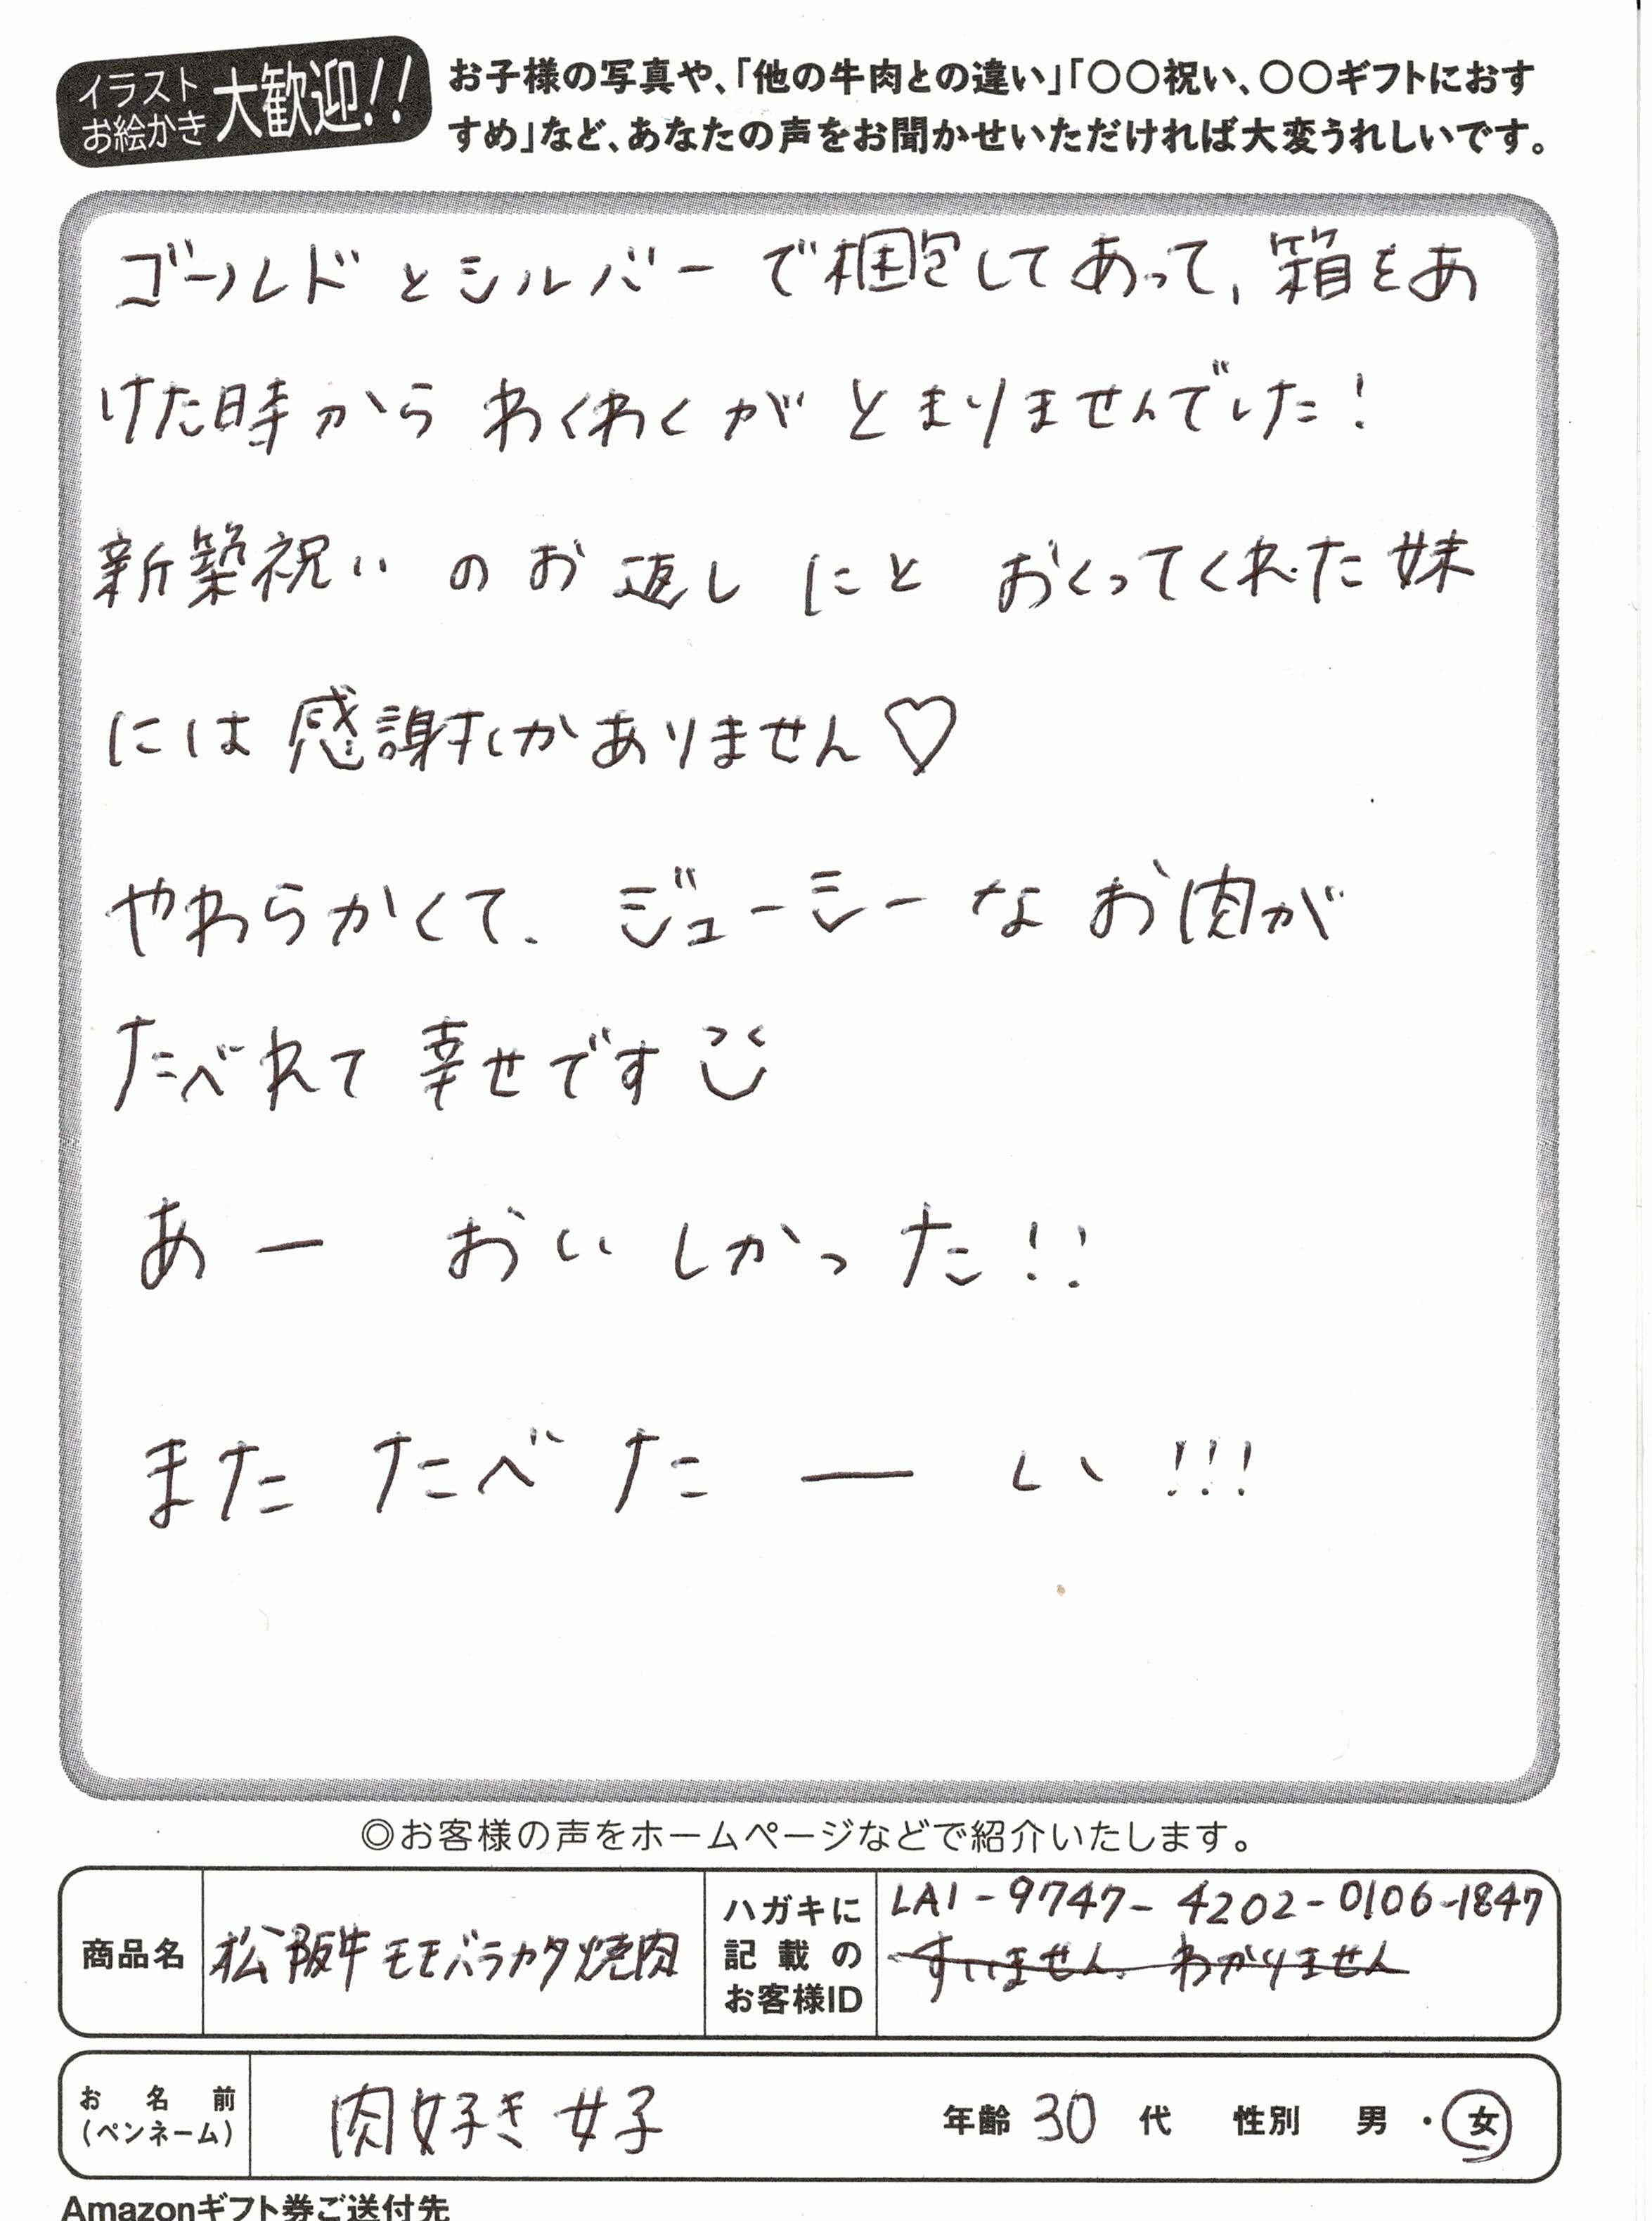 イラスト
お絵かき
大歓迎!!
お子様の写真や、「他の牛肉との違い」「〇〇祝い、〇〇ギフトにおす
すめ」など、あなたの声をお聞かせいただければ大変うれしいです。
ゴールドとシルバーで梱包してあって、箱をあ
けた時からわくわくがとまりませんでした!
新築祝いのお返しにとおくってくれた妹
には感謝しかありません♡
やわらかくて、ジューシーなお肉が
たべれて幸せです
あーおいしかった!!
またたべたーい!!!
◎お客様の声をホームページなどで紹介いたします。
商品名
松阪牛モモバラカタ焼肉
ハガキに
記載の
お客様ID
LA1-9747-4202-0106-1847
すいません、わかりません
お名前
(ペンネーム)
肉好き女子
年齢 30 代 性別 男・女
Amazonギフト券ご送付先